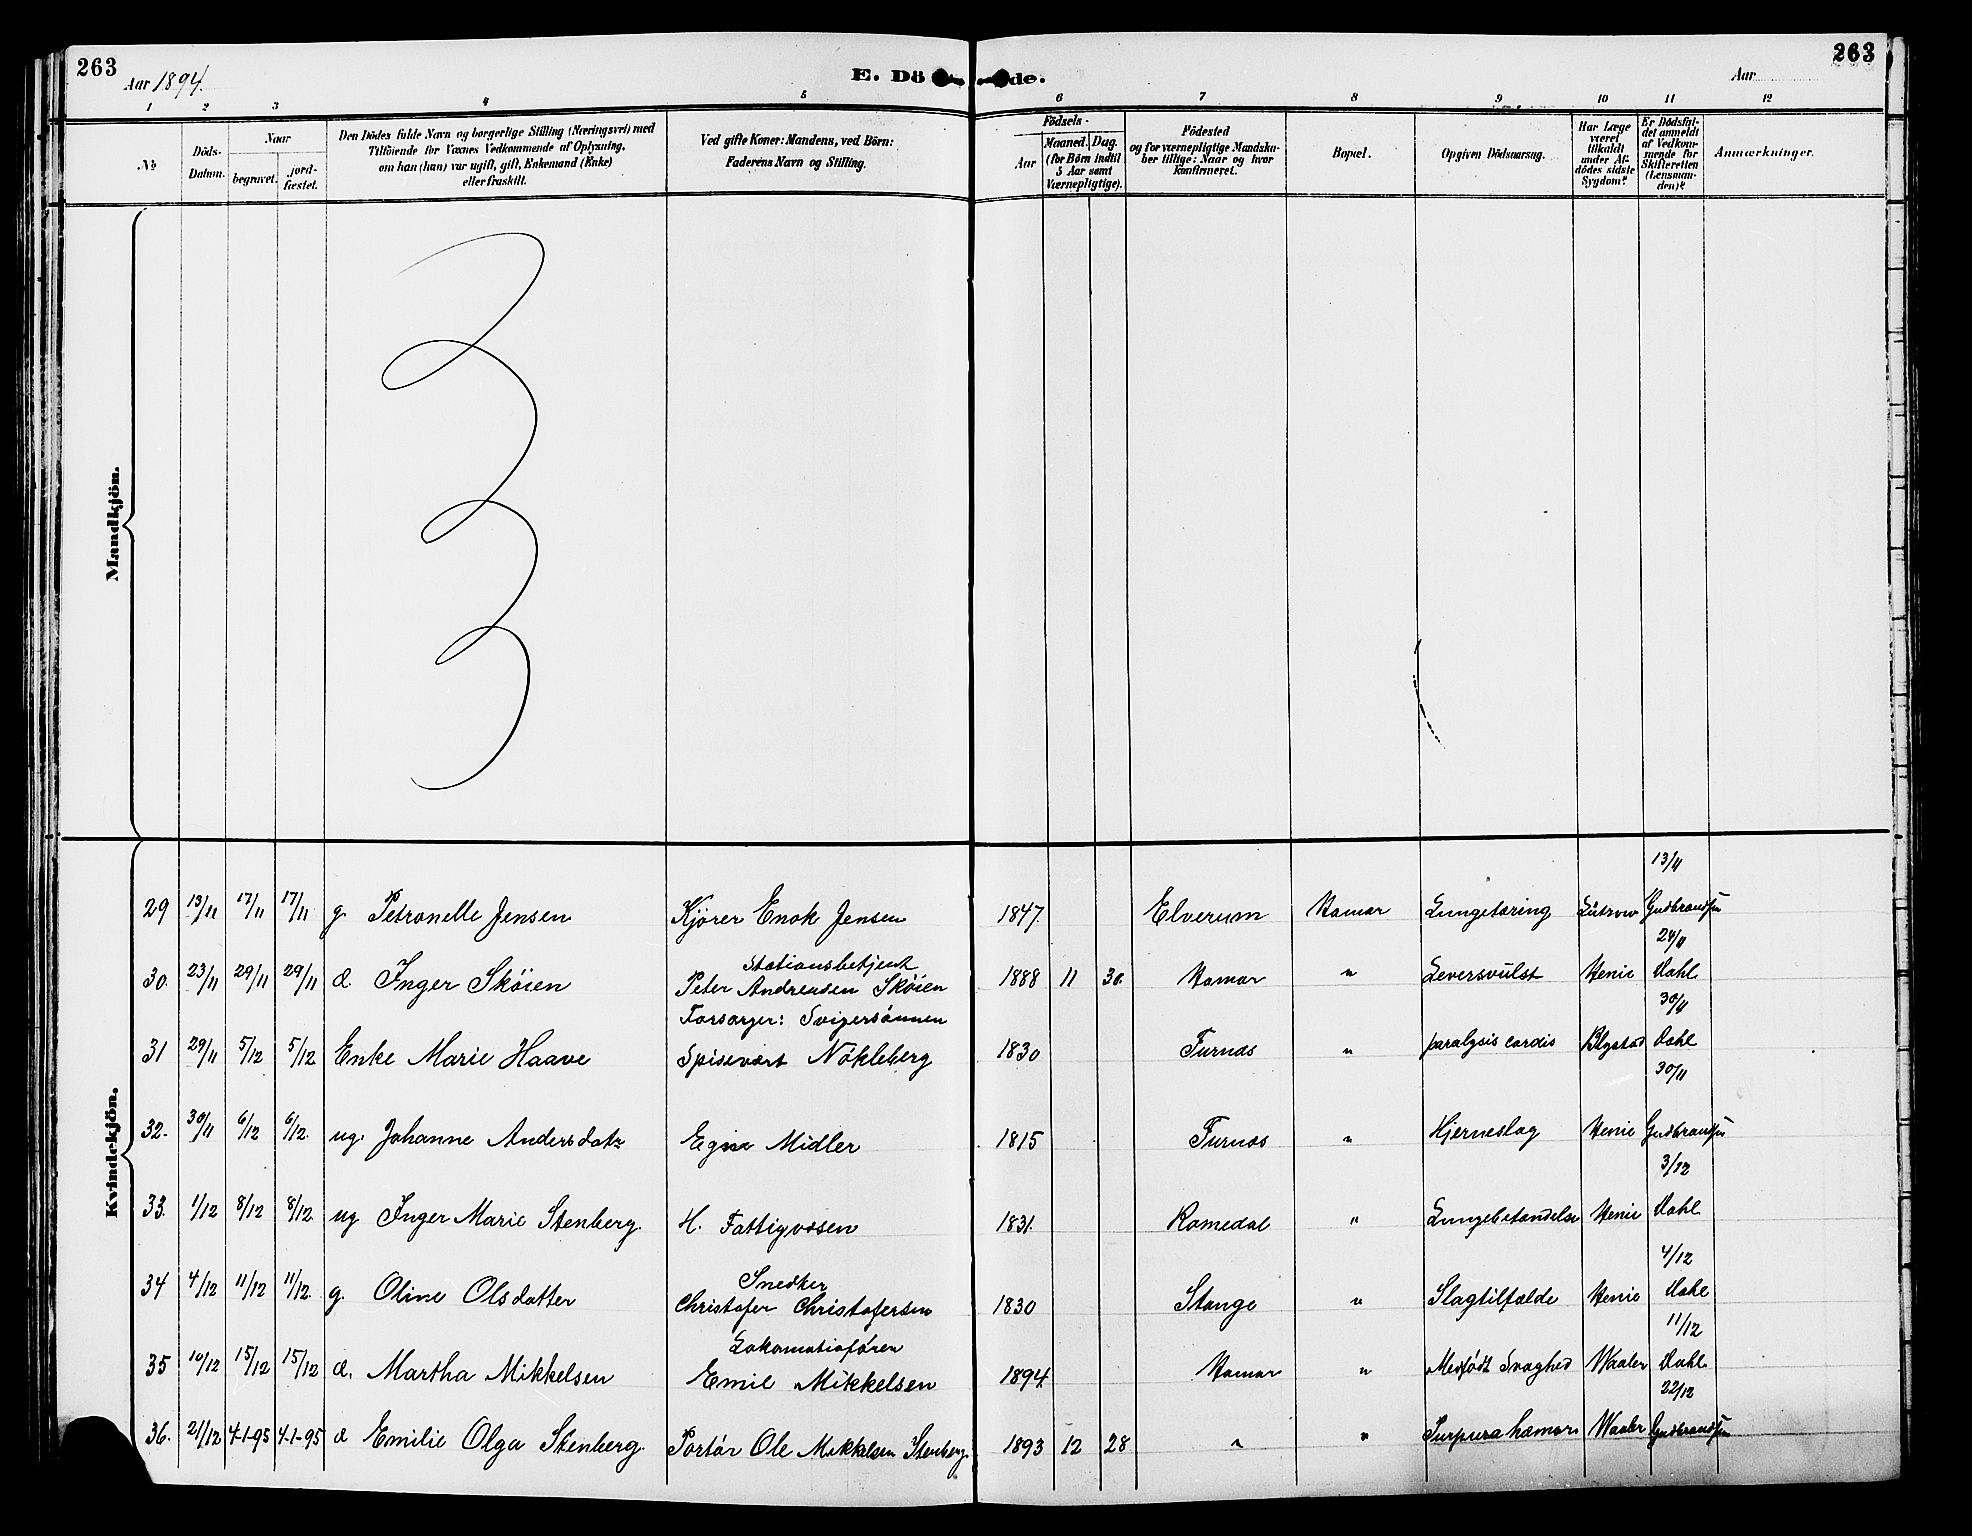 263 Aar 1894. E. Dö de. Aar 263
1 2 3 4 5 6 7 8 9 10 11 12
№
Döds-Datum.
Naar
begravet.
jord-fæstet.
Den Dödes fulde Navn og borgerlige Stilling (Næringsvei) med
Tilföiende for Voxnes Vedkommende af Oplysning,
om han (hun) var ugift, gift, Enkemand (Enke)
eller fraskilt.
Ved gifte Koner: Mandens, ved Börn:
Faderens Navn og Stilling.
Födsels-
Aar
Maaned. Dag.
(for Börn indtil
5 Aar samt
Værnepligtige).
Födested
og for værnepligtige Mandska-
ber tillige: Naar og hvor
konfirmeret.
Bopæl.
Opgiven Dödsaarsag.
Har Læge
været
tilkaldt
under Af-
dödes sidste
Sygdom?
Er Dödsfal-
det anmeldt
af Vedkom-
mende for
Skifteretten
(Lensman-
den)?
Anmærkninger.
Mandkjön.
Kvindekjön.
13/11
29 13/11 17/11 17/11 g. Petronelle Jensen Kjører Enok Jensen 1847. Elverum Hamar Lungetæring Lütrow Gudbrandsen
24/11
Stationsbetjent
30. 23/11 29/11 29/11 d. Inger Skøien Peter Andreasen Skøien 1888 11 30. Hamar " Leversvulst Henie Dahl
30/11
Forsørger: Svigersønnen
31 29/11 5/12 5/12 Enke Marie Haave Spisevært Nökleberg 1830 Furnæs " paralysis cordis Blystad Dahl
30/11
32. 30/11 6/12 6/12. ug. Johanne Andersdatr Egne Midler 1815 Furnæs " Hjerneslag Henie Gudbrandsen
3/12
33. 1/12 8/12 8/12 ug Inger Marie Stenberg. H. Fattigvæsen 1831. Romedal " Lungebetændelse Henie Dahl
4/12
Snedker
34 4/12 11/12 11/12. g. Oline Olsdatter Christofer Christofersen 1830 Stange " Slagtilfælde Henie Dahl
11/12
Lokomotivfører
35 10/12 15/12 15/12 d. Martha Mikkelsen Emil Mikkelsen 1894. Hamar " Medfødt Svaghed Waaler Dahl
22/12
36. 21/12 4-1-95 4-1-95 d Emilie Olga Stenberg. Portør Ole Mikkelsen Stenberg. 1893 12 28 " " Purpura hæmor. Waaler Gudbrandsen